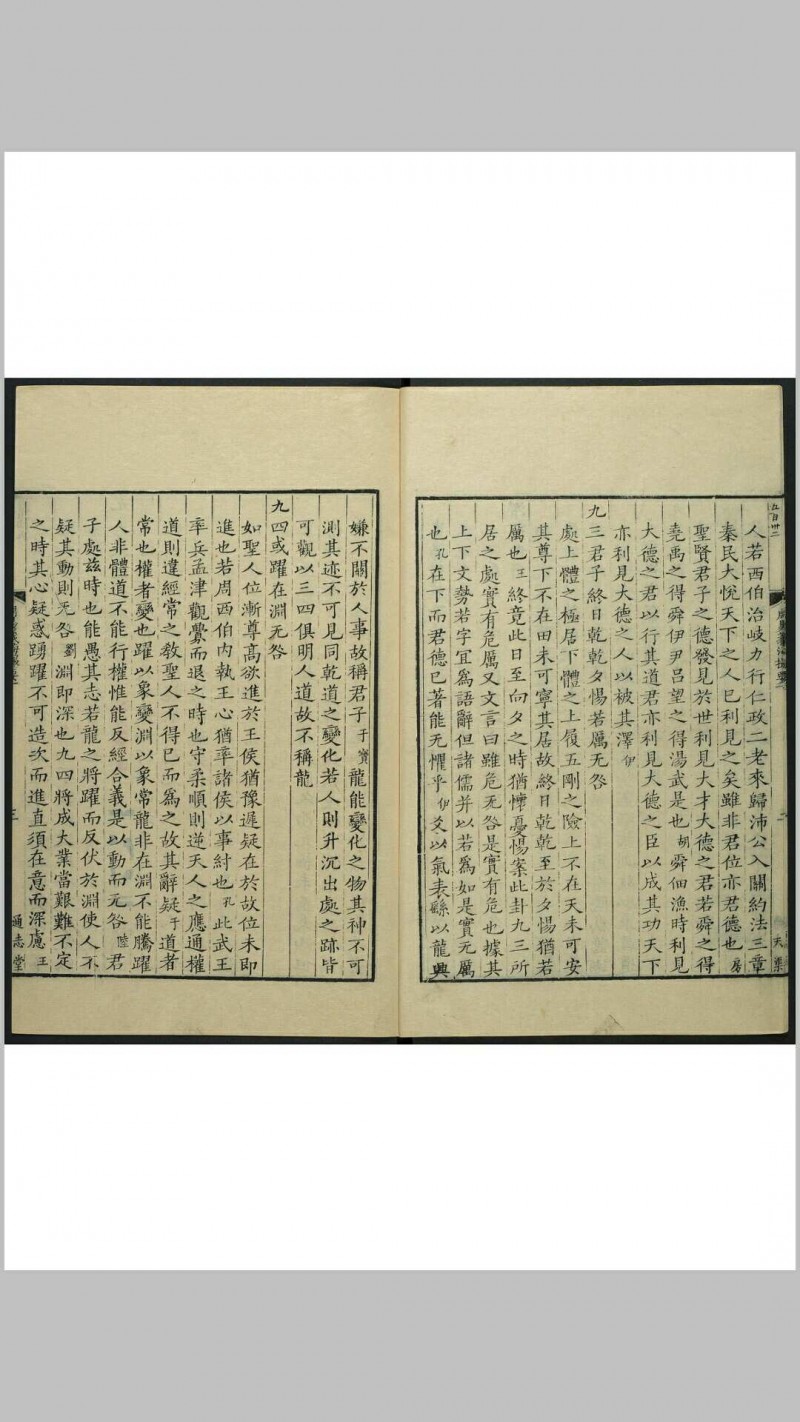 五百卅二
人若西伯治岐力行仁政二老來歸沛公入關約法三章
秦民大悅天下之人已利見之矣雖非君位亦君德也房
聖賢君子之德發見於世利見大才大德之君若舜之得
堯禹之得舜伊尹呂望之得湯武是也胡舜佃漁時利見
大德之君以行其道君亦利見大德之臣以成其功天下
亦利見大德之人以被其澤伊
九三君子終日乾乾夕惕若厲无咎
處上體之極居下體之上履五剛之險上不在天未可安
其尊下不在田未可寧其居故終日乾乾至於夕惕猶若
厲也王終竟此日至向夕之時猶懷憂惕案此卦九三所
居之處實有危厲又文言曰雖危无咎是實有危也據其
上下文勢若字宜爲語辭但諸儒并以若爲如是實无厲
也孔在下而君德已著能无懼乎伊爻以氣表繇以龍興
嫌不關於人事故稱君子干寶龍能變化之物其神不可
測其迹不可見同乾道之變化若人則升沉出處之跡皆
可觀以三四俱明人道故不稱龍
九四或躍在淵无咎
如聖人位漸尊高欲進於王侯猶豫遲疑在於故位未即
進也若周西伯內執王心猶率諸侯以事紂也孔此武王
率兵孟津觀釁而退之時也守柔順則逆天人之應通權
道則違經常之敎聖人不得已而爲之故其辭疑于道者
常也權者變也躍以象變淵以象常龍非在淵不能騰躍
人非體道不能行權惟能反經合義是以動而无咎陸君
子處茲時也能愚其志若龍之將躍而反伏於淵使人不
疑其動則无咎劉淵即深也九四將成大業當艱難不定
之時其心疑惑踴躍不可造次而進直須在意而深慮王
三
通志堂